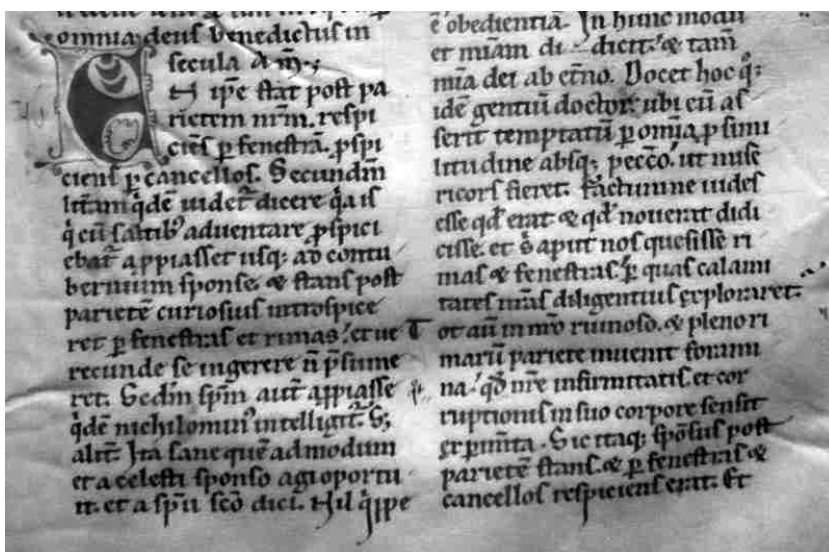 omnia deus benedictus in
secula am̄.
En ip̄e stat post pa
rietem nr̄m. respi
ciēs p̱ fenestrā. ꝓspi
ciens p̱ cancellos. Secundm̄
litt̄am qͥdē uidet᷑ dicere qͥa is
qͥ cū saltibꝰ aduentare ꝓspici
ebat᷑ ap̱piasset usqꝫ ad contu
bernium sponse. & stans post
parietē curiosius introspice
ret p̱ fenestras et rimas. et ue
recunde se ingerere n̄ p̄sume
ret. Sedm̄ sp̄m aut̄ ap̱piasse
qͥdē nichilominꝰ intelligit᷑. Sꝫ
alit̄. Ita sane quēadmodum
et a celesti sponso agi oportu
it. et a sp̄u sc̄o dici. Nil qͥppe
ē obedientiā. In hunc modū
et mīam di dicit᷑. & tam̄
mīa dei ab et̄no. Docet hoc qͦꝫ
idē gentiū doctor. ubi eū as
serit temptatū p̱ om̄ia ꝓ simi
litudine absqꝫ pecc̄o. ut mise
ricors fieret. Factumne uides
esse qd̄ erat & qd̄ nouerit didi
cisse. et aput nos quesisse ri
mas & fenestras. p̱ quas calami
tates nr̄as diligentius exploraret.
Tot aū in nr̄o ruinoso. & pleno ri
marū pariete inuenit forami
na. qd̄ nr̄e infirmitatis. et cor
ruptionis in suo corpore sensit
exp̱im̄ta. Sic itaqꝫ spōsus post
parietē stans. & p̱ fenestras &
cancellos respiciens erat. Et